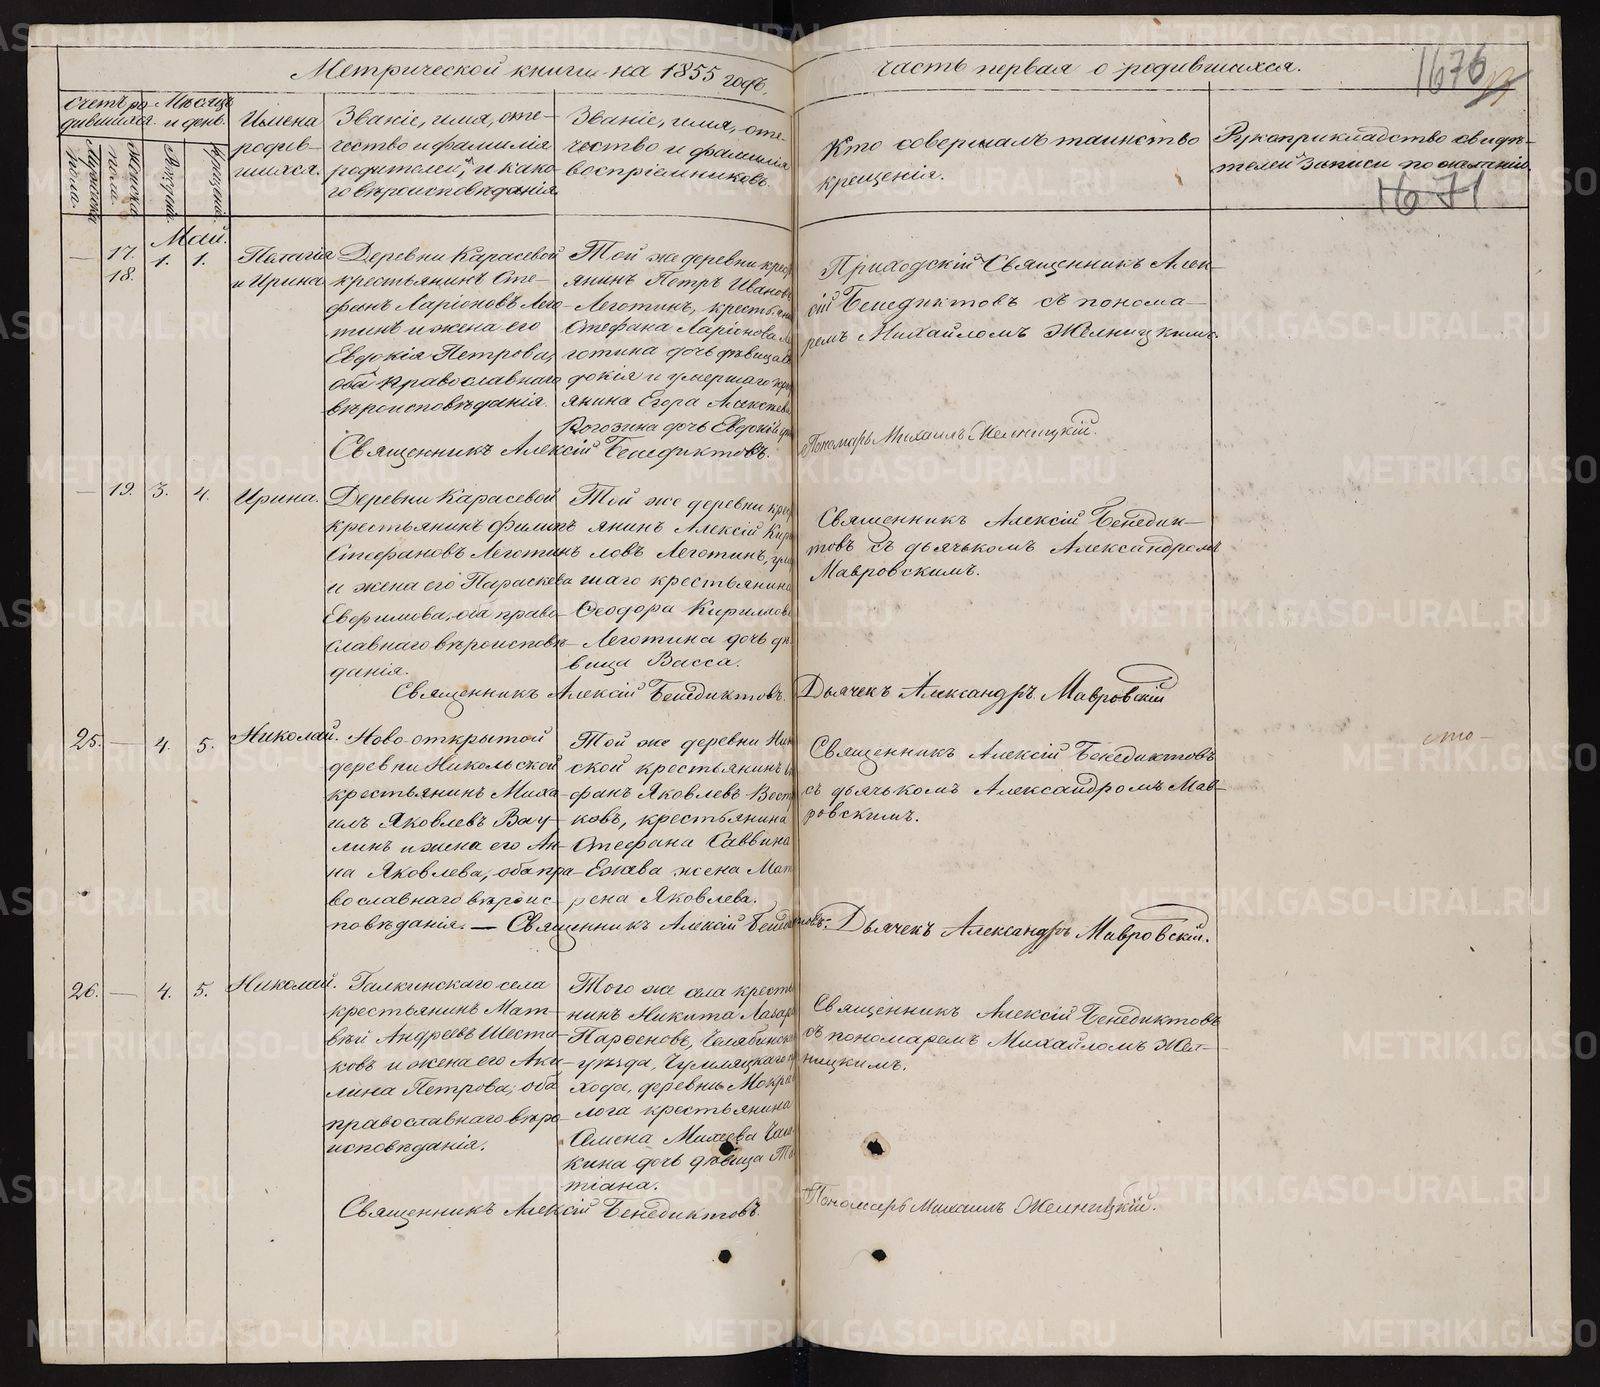 Метрической книги на 1855 годъ.
часть первая о родившихся.
1676
1671
Счетъ ро-
дившихся.
Мѣсяцъ
и день.
Мужеска
пола.
Женска
пола.
Рожденія.
Крещенія.
Имена
родив-
шихся.
Званіе, имя, оте-
чество и фамилія
родителей, и како-
го вѣроисповѣданія.
Званіе, имя, оте-
чество и фамилія
воспріемниковъ.
Кто совершалъ таинство
крещенія.
Рукоприкладство свидѣ-
телей записи по желанію.
Май.
— 17. 18. 1. 1.
Пелагія
и Ирина
Деревни Карасевой
крестьянинъ Сте-
фанъ Ларіоновъ Лего-
тинъ и жена его
Евдокія Петрова,
оба православнаго
вѣроисповѣданія.
Той же деревни крес
янинъ Петръ Ивановъ
Леготинъ, крестьяни
Стефана Ларіонова Ле
готина дочь дѣвица Ев
докія и умершаго кре
янина Егора Алексѣева
Рогозина дочь Евдокія
Приходскій Священникъ Алек-
сій Бенедиктовъ съ понома-
ремъ Михайломъ Желницкимъ.
Священникъ Алексій Бенедиктовъ.
Пономарь Михаилъ Желницкій.
— 19. 3. 4.
Ирина.
Деревни Карасевой
крестьянинъ Филипъ
Стефановъ Леготинъ
и жена его Параскева
Евфимова, оба право-
славнаго вѣроисповѣ-
данія.
Той же деревни крес
янинъ Алексій Кири
ловъ Леготинъ, умер
шаго крестьянина
Ѳеодора Кириллова
Леготина дочь дѣ
вица Васса.
Священникъ Алексій Бенедик-
товъ съ дьячькомъ Александромъ
Мавровскимъ.
Священникъ Алексій Бенедиктовъ.
Дьячекъ Александръ Мавровскій
25. — 4. 5.
Николай.
Ново-открытой
деревни Никольской
крестьянинъ Миха-
илъ Яковлевъ Вау-
линъ и жена его Ан-
на Яковлева, оба пра-
вославнаго вѣроис-
повѣданія. —
Той же деревни Ник
ской крестьянинъ
фанъ Яковлевъ Вост
ковъ, крестьянина
Стефана Саввина
Ежава жена Мат
рена Яковлева.
Священникъ Алексій Бенедиктовъ
съ дьячькомъ Александромъ Мав-
ровскимъ.
Священникъ Алексій Бенедиктовъ.
Дьячекъ Александръ Мавровскій.
26. — 4. 5.
Николай.
Галкинскаго села
крестьянинъ Мат-
вѣй Андреевъ Шеста-
ковъ и жена его Аку-
лина Петрова, оба
православнаго вѣро-
исповѣданія.
Того же села крестья
нинъ Никита Лазар
Парѳеновъ, Челябинска
уѣзда, Чумляцкаго п
хода, деревни Мокра
лога крестьянина
Семена Михеева Чаш
кина дочь дѣвица Та
тіана.
Священникъ Алексій Бенедиктовъ
съ пономаремъ Михайломъ Жел-
ницкимъ.
Священникъ Алексій Бенедиктовъ.
Пономарь Михаилъ Желницкій.
METRIKI.GASO-URAL.RU